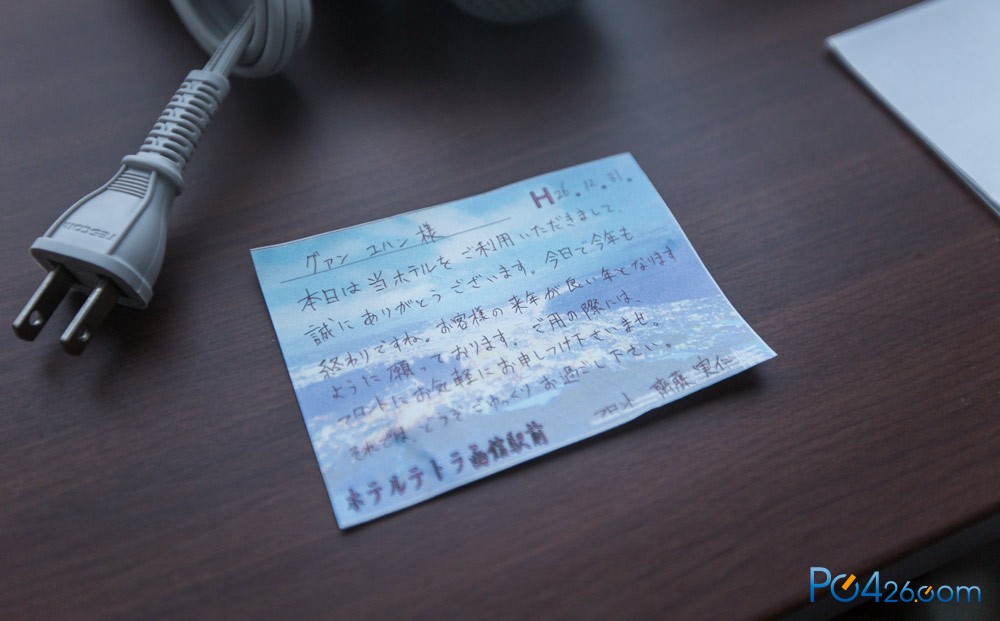 H26.12.31.
グァン ユハン 様
本日は当ホテルをご利用いただきまして、
誠にありがとうございます。今日で今年も
終わりですね。お客様の来年が良い年となります
ように願っております。ご用の際には、
フロントにお気軽にお申しつけ下さいませ。
それでは、どうぞごゆっくりお過ごし下さい。
フロント 齋藤
ホテルテトラ 駅前
PC426.com